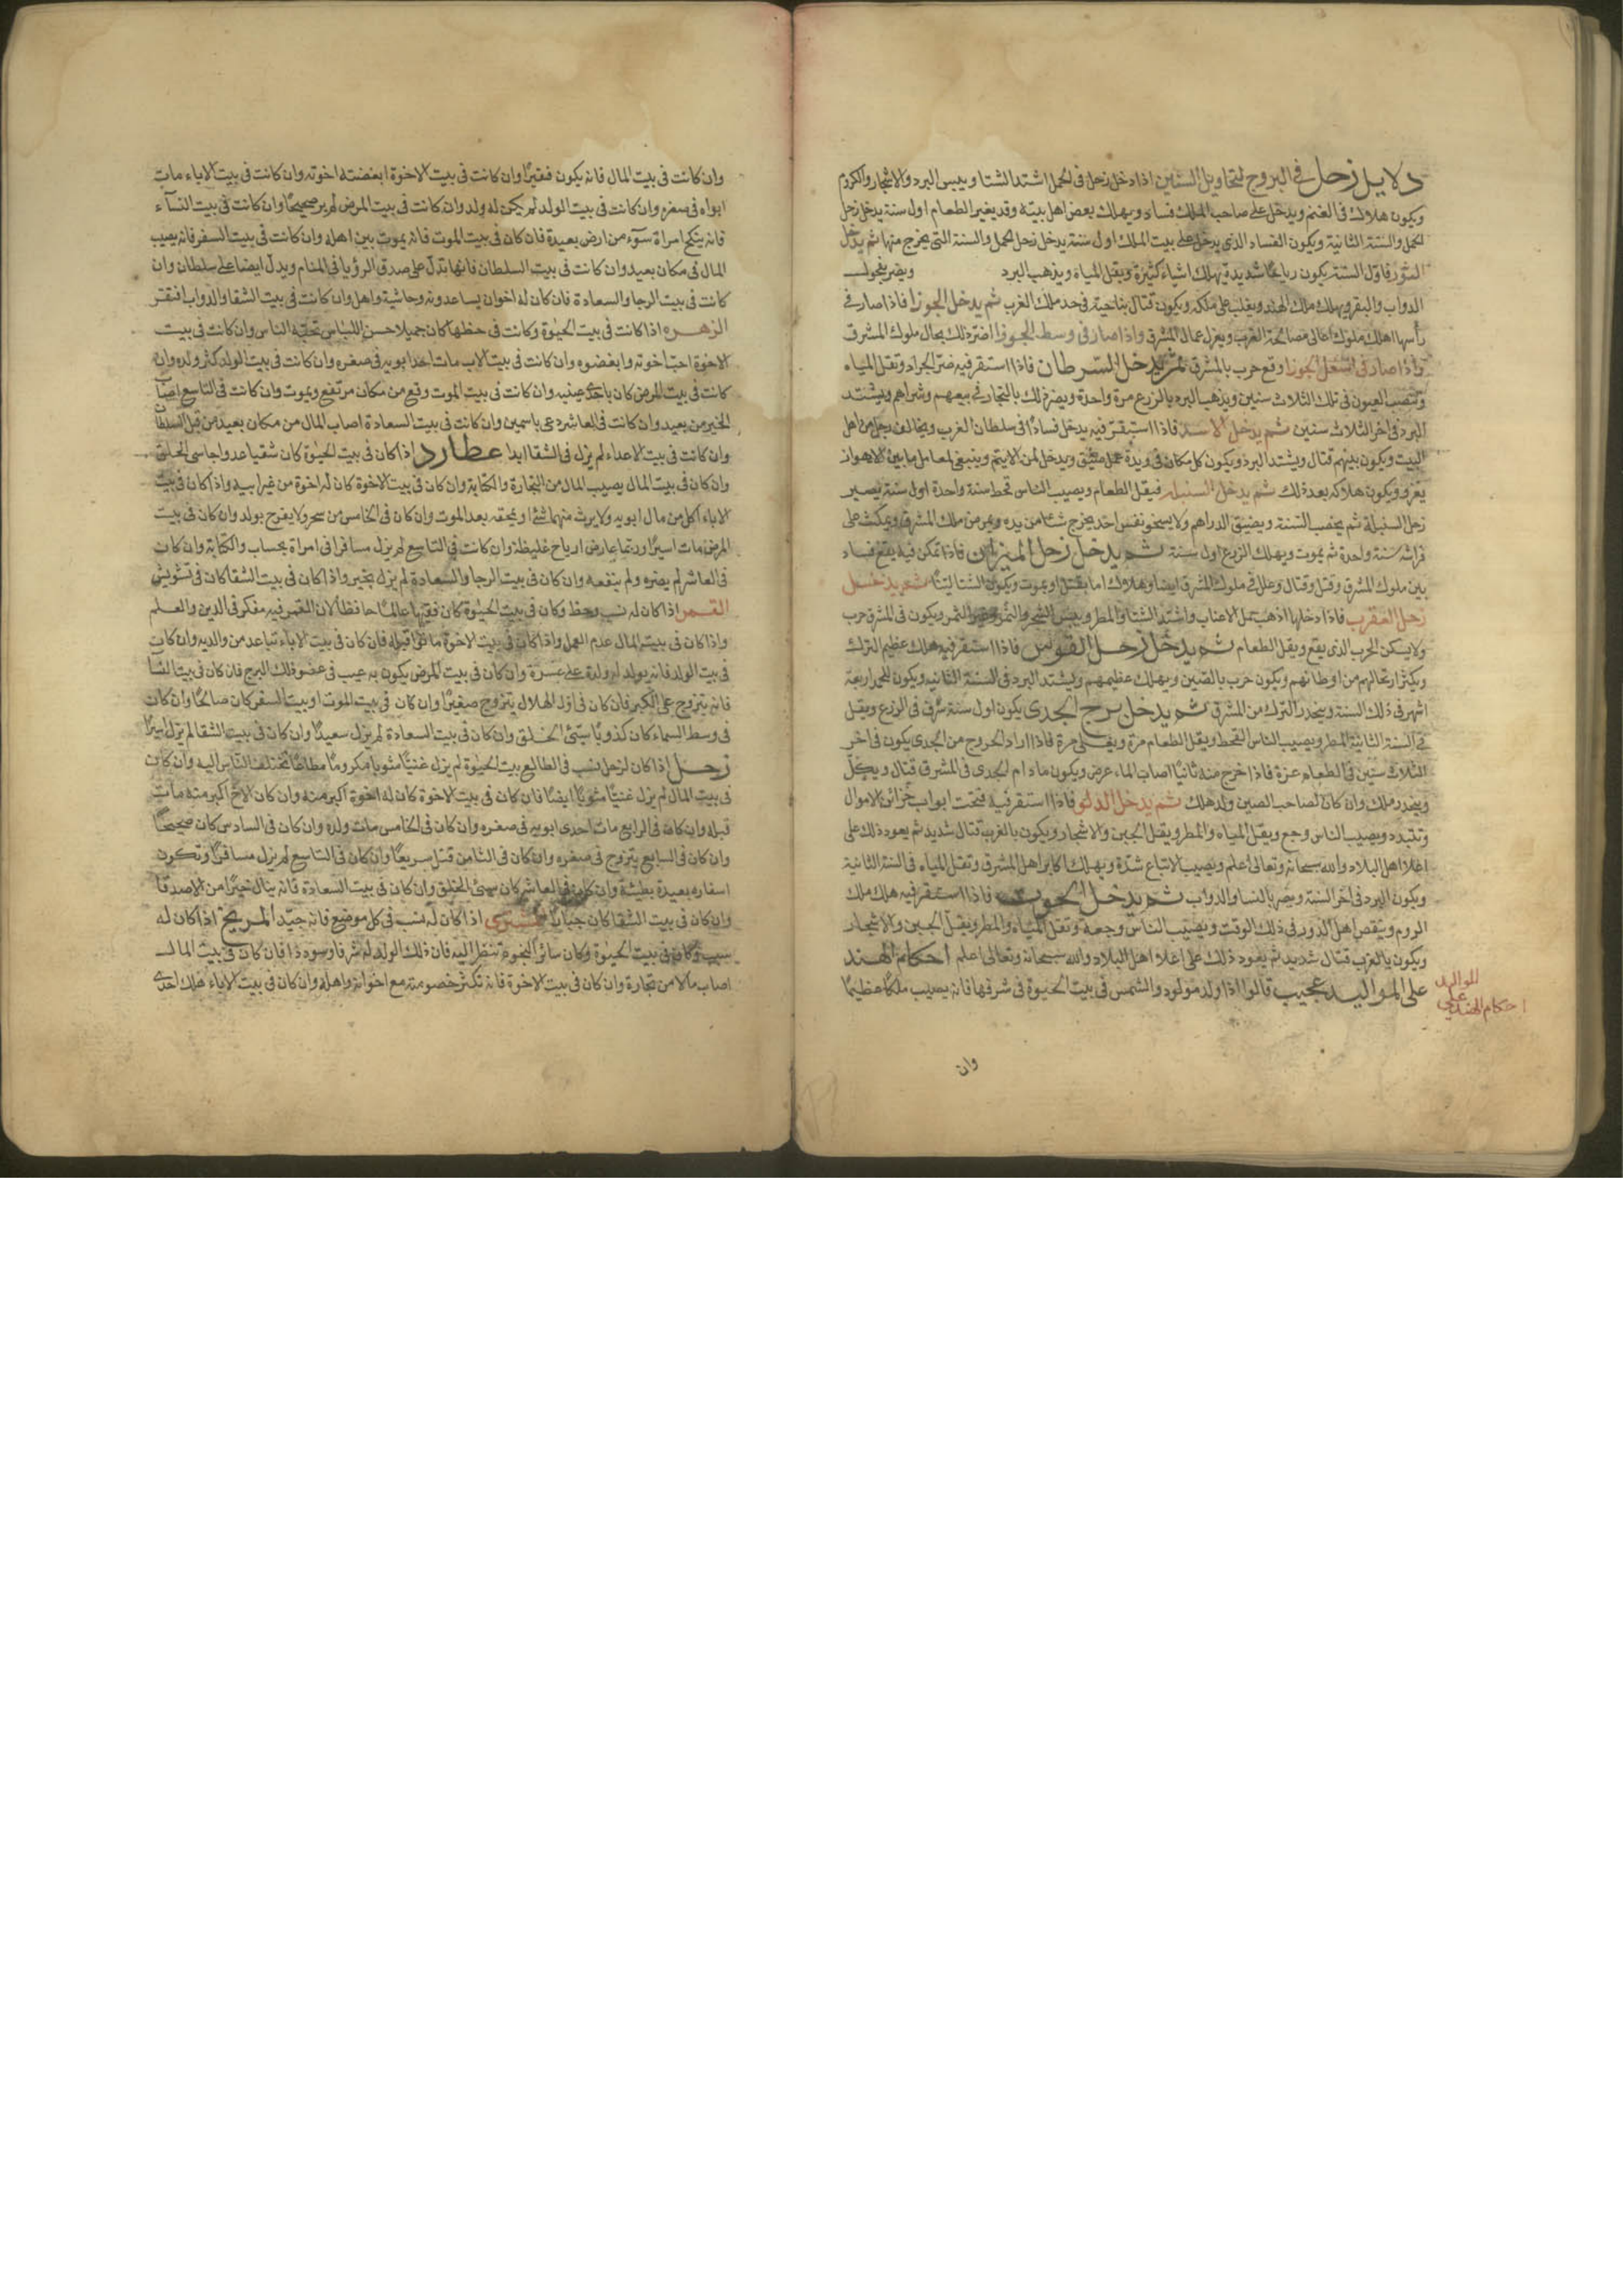 دلايل زحل في البروج لتحاويل السنين اذا دخل زحل في الحمل اشتد الشتا ويبس البرد والاشجار والكروم
ويكون هلاك في الغنم ويدخل على صاحب الملك فساد ويهلك بعض اهل بيته وقد يغير الطعام اول سنة يدخل زحل
الحمل والسنة الثانية ويكون الفساد الذي يدخل على بيت الملك اول سنة يدخل زحل الحمل والسنة التي يخرج منها ثم يدخل
الثور فاول السنة يكون رياحا شديدة يهلك اشياء كثيرة ويقل المياه ويذهب البرد ويضر
الدواب والبقر ويهلك ملك الهند ويغلب على ملكه ويكون قتال بناحية في حد ملك الغرب ثم يدخل الجوزا فاذا صار في
رأسها اهلك ملوك اعالي الغرب ويعزل عمال المشرق واذا صار في وسط الجوزا اضر ذلك بحال ملوك المشرق
واذا صار في اسفل الجوزا وقع حرب بالمشرق ثم يدخل السرطان فاذا استقر فيه ضر الجراد وتقل المياه
وتنضب العيون في تلك الثلاث سنين ويذهب البرد بالزرع مرة واحدة ويضر ذلك بالتجار في بيعهم وشراهم ويشتد
البرد في اخر الثلاث سنين ثم يدخل الاسد فاذا استقر فيه يدخل فسادا في سلطان الغرب ويخالف رجل من اهل
البيت ويكون بينهم قتال ويشتد البرد ويكون كل مكان في ويدخل لمن لا يتم وينبغي لعامل ما بين الاهواز
يغزو ويكون هلاكه بعد ذلك ثم يدخل السنبله فيقل الطعام ويصيب الناس قحط سنة واحدة اول سنة يصير
زحل السنبلة ثم يخصب السنة ويضيق الدراهم ولا يسخو نفس احد يخرج شئا من يده ويمرض ملك المشرق ويمكث على
فراشه سنة واحدة ثم يموت ويهلك الزرع اول سنة ثم يدخل زحل الميزان فاذا تمكن فيه يقع فساد
بين ملوك المشرق وقتل وقتال وعلل في ملوك المشرق ايضا وهلاك اما يقتل او يموت ويكون الشتا لينا ثم يدخل
زحل العقرب فاذا دخلها اذهب ثمل الاعناب واشتد الشتا والمطر ويبس الشجر والثمر ويكون في المشرق حرب
ولا يسكن الحرب الذي يقع ويقل الطعام ثم يدخل زحل القوس فاذا استقر فيه هلك عظيم الترك
ويكثر ارتحالهم من اوطانهم ويكون حرب بالصين ويهلك عظيمهم ويشتد البرد في السنة الثانيه ويكون اربعة
اشهر في ذلك السنة وينحدر الترك من المشرق ثم يدخل برج الجدى يكون اول سنة في الزرع ويقل
في السنة الثانية المطر ويصيب الناس القحط ويقل الطعام مرة مرة فاذا اراد الخروج من الجدى يكون في اخر
الثلاث سنين في الطعام عزة فاذا خرج منه ثانيا اصاب الماء عرض ويكون ما دام الجدى في المشرق قتال
ويغدر ملك وان كان لصاحب الصين ولد هلك ثم يدخل الدلو فاذا استقر فيه فتحت ابواب خزائن الاموال
وتتبدد ويصيب الناس وجع ويقل المياه والمطر ويقل الجبن والاشجار ويكون بالغرب قتال شديد ثم يعود ذلك على
اعلا اهل البلاد والله سبحانه وتعالى اعلم ويصيب الاتباع شدة ويهلك اكابر اهل المشرق وتقل المياه في السنة الثانية
ويكون البرد في اخر السنة ويضر بالنسا والدواب ثم يدخل الحوت فاذا استقر فيه هلك ملك
الروم وينقص اهل الدور في ذلك الوقت ويصيب الناس وجعه وتقل المياه والمطر ويقل الجبن والاشجار
ويكون بالغرب قتال شديد ثم يعود ذلك على اعلا اهل البلاد والله سبحانه وتعالى اعلم احكام الهند
على المواليد عجيب قالوا اذا ولد مولود والشمس في بيت الحيوة في شرفها فانه يصيب ملكا عظيما
احكام الهند على المواليد
وان
وان كانت في بيت المال فانه يكون فقيرا وان كانت في بيت الاخوة ابغضته اخوته وان كانت في بيت الاباء مات
ابواه في صغره وان كانت في بيت الولد لم يكن له ولد وان كانت في بيت المرض لم ير صحيحا وان كانت في بيت النسآء
فانه ينكح امراة سوء من ارض بعيدة فان كان في بيت الموت فانه يموت بين اهله وان كانت في بيت السفر فانه يصيب
المال في مكان بعيد وان كانت في بيت السلطان فانها تدل على صدق الرؤيا في المنام ويدل ايضا على سلطان وان
كانت في بيت الرجا والسعادة فان كان له اخوان يساعدونه وحاشية واهل وان كانت في بيت الشقا والدواب افتقر
الزهره اذا كانت في بيت الحيوة وكانت في حظها كان جميلا حسن اللباس تحبه الناس وان كانت في بيت
الاخوة احب اخوته وابغضوه وان كانت في بيت الاب مات احد ابويه في صغره وان كانت في بيت الولد كثر ولده وان
كانت في بيت المرض كان باحد عينيه وان كانت في بيت الموت وقع من مكان مرتفع ويموت وان كانت في التاسع اصاب
الخير من بعيد وان كانت في العاشر دعى باسمين وان كانت في بيت السعادة اصاب المال من مكان بعيد من قبل السلطان
وان كانت في بيت الاعداء لم يزل في الشقا ابدا عطارد اذا كان في بيت الحيوة كان شقيا عدوا جاسى الخلق
وان كان في بيت المال يصيب المال من التجارة والكتابة وان كان في بيت الاخوة كان له اخوة من غير ابيه واذا كان في بيت
الاباء اكل من مال ابويه ولا يرث منهما شئا ويمحقه بعد الموت وان كان في الخامس من سحر ولا يفرح بولد وان كان في بيت
المرض مات اسيرا وربما عارض ارياح غليظة وان كانت في التاسع لم يزل مسافرا في امراة بحساب والكتابة وان كان
في العاشر لم يضره ولم ينفعه وان كان في بيت الرجا والسعادة لم يزل بخير واذا كان في بيت الشقا كان في تشويش
القمر اذا كان له نسب وحظ وكان في بيت الحيوة كان فقيها عالما حافظا لان القمر فيه مفكر في الدين والعلم
واذا كان في بيت المال عدم العمل واذا كان في بيت الاخوة ماتوا قبله فان كان في بيت الاباء تباعد من والديه وان كان
في بيت الولد فانه يولد له ولد على عسرة وان كان في بيت المرض يكون به عيب في عضو ذلك البرج فان كان في بيت النسآ
فانه يتزوج على الكبر فان كان في اول الهلال يتزوج صغيرا وان كان في بيت الموت او بيت السفر كان صالحا وان كان
في وسط السماء كان كذوبا سيئ الخلق وان كان في بيت السعادة لم يزل سعيدا وان كان في بيت الشقا لم يزل
زحل اذا كان لزحل نسب في الطالع بيت الحيوة لم يزل غنيا مكروما مطاعا تختلف الناس اليه وان كان
في بيت المال لم يزل غنيا ايضا فان كان في بيت الاخوة كان له اخوة اكبر منه وان كان الاخ اكبر منه مات
قبله وان كان في الرابع مات احدى ابويه في صغره وان كان في الخامس مات ولده وان كان في السادس كان صحيحا
وان كان في السابع يتزوج في صغره وان كان في الثامن قتل سريعا وان كان في التاسع لم يزل مسافرا وتكون
اسفاره بعيدة بطيئة وان كان في العاشر كان سيئ الخلق وان كان في بيت السعادة فانه ينال خيرا من الاصدقا
وان كان في بيت الشقا كان جبارا المشترى اذا كان له نسب في كل موضع فانه جيد المريخ اذا كان له
سبب وكان في بيت الحيوة وكان سائر النجوم تنظر اليه فان ذلك الولد له شرفا وسوددا فان كان في بيت المال
اصاب مالا من تجارة وان كان في بيت الاخوة فانه تكثر خصومته مع اخوانه واهله وان كان في بيت الاباء هلك احدى